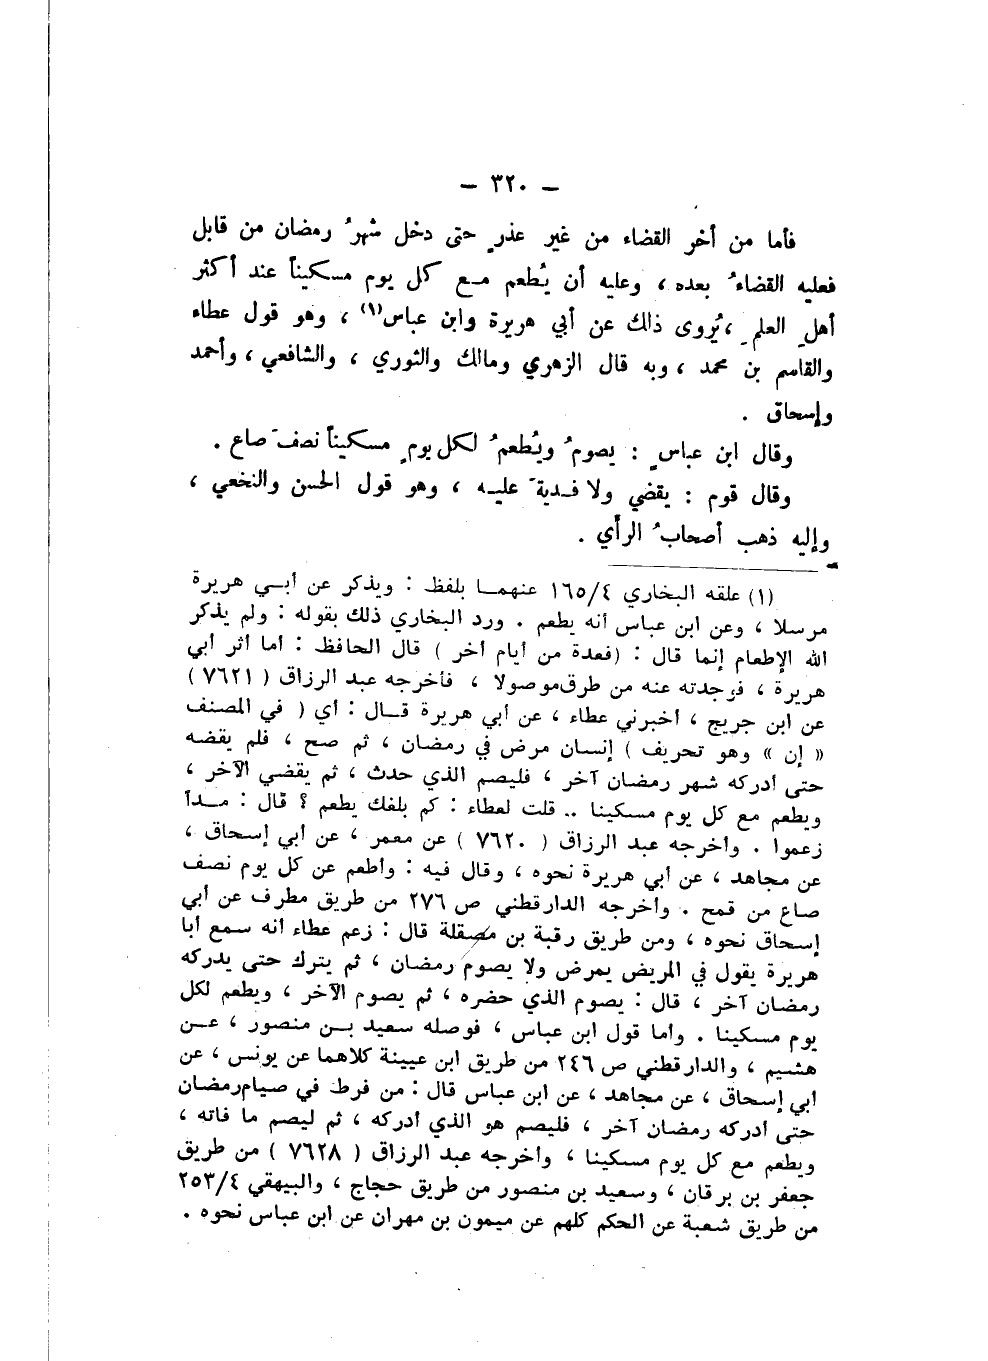 – ٣٢٠ –
فأما من أخر القضاء من غير عذرٍ حتى دخل شهرُ رمضان من قابل
فعليه القضاءُ بعده ، وعليه أن يُطعم مع كل يوم مسكيناً عند أكثر
أهلِ العلمِ ، يُروى ذلك عن أبي هريرة وابن عباس(١) ، وهو قول عطاء
والقاسم بن محمد ، وبه قال الزهري ومالك والثوري ، والشافعي ، وأحمد
وإسحاق .
وقال ابن عباسٍ : يصومُ ويُطعمُ لكل يومٍ مسكيناً نصفَ صاع .
وقال قوم : يقضي ولا فديةَ عليه ، وهو قول الحسن والنخعي ،
وإليه ذهب أصحابُ الرأي .
(١) علقه البخاري ١٦٥/٤ عنهما بلفظ : ويذكر عن أبي هريرة
مرسلا ، وعن ابن عباس أنه يطعم . ورد البخاري ذلك بقوله : ولم يذكر
الله الإطعام إنما قال : (فعدة من أيام أخر ) قال الحافظ : أما أثر أبي
هريرة ، فوجدته عنه من طرق موصولا ، فأخرجه عبد الرزاق ( ٧٦٢١ )
عن ابن جريج ، أخبرني عطاء ، عن أبي هريرة قال : أي ( في المصنف
« إن » وهو تحريف ) إنسان مرض في رمضان ، ثم صح ، فلم يقضه
حتى أدركه شهر رمضان آخر ، فليصم الذي حدث ، ثم يقضي الآخر ،
ويطعم مع كل يوم مسكينا .. قلت لعطاء : كم بلغك يطعم ؟ قال : مدأ
زعموا . وأخرجه عبد الرزاق ( ٧٦٢٠ ) عن معمر ، عن أبي إسحاق ،
عن مجاهد ، عن أبي هريرة نحوه ، وقال فيه : وأطعم عن كل يوم نصف
صاع من قمح . وأخرجه الدارقطني ص ٢٧٦ من طريق مطرف عن أبي
إسحاق نحوه ، ومن طريق رقبة بن مصقلة قال : زعم عطاء أنه سمع أبا
هريرة يقول في المريض يمرض ولا يصوم رمضان ، ثم يترك حتى يدركه
رمضان آخر ، قال : يصوم الذي حضره ، ثم يصوم الآخر ، ويطعم لكل
يوم مسكينا . وأما قول ابن عباس ، فوصله سعيد بن منصور ، عن
هشيم ، والدارقطني ص ٢٤٦ من طريق ابن عيينة كلاهما عن يونس ، عن
أبي إسحاق ، عن مجاهد ، عن ابن عباس قال : من فرط في صيام رمضان
حتى أدركه رمضان آخر ، فليصم هو الذي أدركه ، ثم ليصم ما فاته ،
ويطعم مع كل يوم مسكينا ، وأخرجه عبد الرزاق ( ٧٦٢٨ ) من طريق
جعفر بن برقان ، وسعيد بن منصور من طريق حجاج ، والبيهقي ٢٥٣/٤
من طريق شعبة عن الحكم كلهم عن ميمون بن مهران عن ابن عباس نحوه .